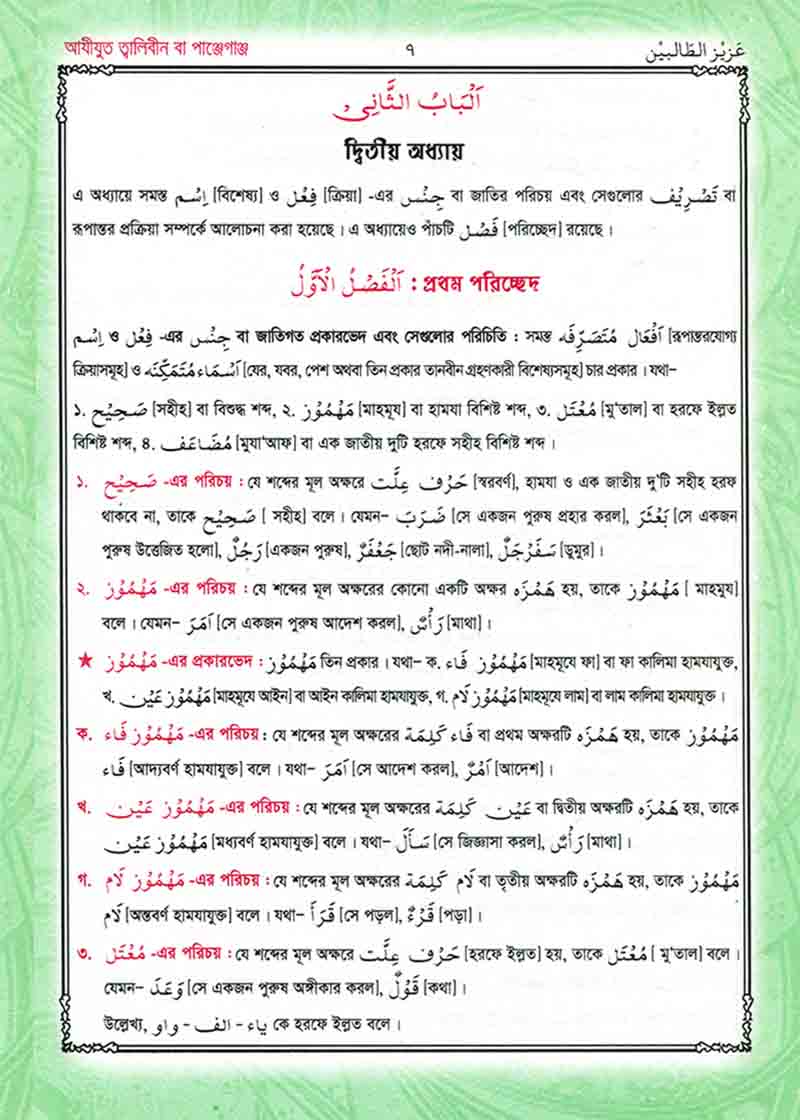 আযীযুত ত্বালিবীন বা পাঞ্জেগাঞ্জ ৭ عَزِيْزُ الطَّالِبِيْن
اَلْبَابُ الثَّانِى
দ্বিতীয় অধ্যায়
এ অধ্যায়ে সমস্ত اِسْم [বিশেষ্য] ও فِعْل [ক্রিয়া] -এর جِنْس বা জাতির পরিচয় এবং সেগুলোর تَصْرِيْف বা
রূপান্তর প্রক্রিয়া সম্পর্কে আলোচনা করা হয়েছে। এ অধ্যায়েও পাঁচটি فَصْل [পরিচ্ছেদ] রয়েছে।
اَلْفَصْلُ الْاَوَّلُ : প্রথম পরিচ্ছেদ
اِسْم ও فِعْل -এর جِنْس বা জাতিগত প্রকারভেদ এবং সেগুলোর পরিচিতি : সমস্ত اَفْعَال مُتَصَرِّفَه [রূপান্তরযোগ্য
ক্রিয়াসমূহ] ও اَسْمَاء مُتَمَكِّنَه [যের, যবর, পেশ অথবা তিন প্রকার তানবীন গ্রহণকারী বিশেষ্যসমূহ] চার প্রকার। যথা–
১. صَحِيْح [সহীহ] বা বিশুদ্ধ শব্দ, ২. مَهْمُوْز [মাহমূয] বা হামযা বিশিষ্ট শব্দ, ৩. مُعْتَل [মু'তাল] বা হরফে ইল্লত
বিশিষ্ট শব্দ, ৪. مُضَاعَف [মুযা'আফ] বা এক জাতীয় দুটি হরফে সহীহ বিশিষ্ট শব্দ।
১. صَحِيْح -এর পরিচয় : যে শব্দের মূল অক্ষরে حَرْف عِلَّت [স্বরবর্ণ], হামযা ও এক জাতীয় দু'টি সহীহ হরফ
থাকবে না, তাকে صَحِيْح [ সহীহ] বলে। যেমন– ضَرَبَ [সে একজন পুরুষ প্রহার করল], بَعْثَرَ [সে একজন
পুরুষ উত্তেজিত হলো], رَجُلٌ [একজন পুরুষ], جَعْفَرٌ [ছোট নদী-নালা], سَفَرْجَلٌ [ডুমুর]।
২. مَهْمُوْز -এর পরিচয় : যে শব্দের মূল অক্ষরের কোনো একটি অক্ষর هَمْزَه হয়, তাকে مَهْمُوْز [ মাহমুয]
বলে। যেমন– اَمَرَ [সে একজন পুরুষ আদেশ করল], رَأْسٌ [মাথা]।
★ مَهْمُوْز -এর প্রকারভেদ : مَهْمُوْز তিন প্রকার। যথা– ক. مَهْمُوْز فَاء [মাহমূযে ফা] বা ফা কালিমা হামযাযুক্ত,
খ. مَهْمُوْز عَيْن [মাহমূযে আইন] বা আইন কালিমা হামযাযুক্ত, গ. مَهْمُوْز لَام [মাহমূযে লাম] বা লাম কালিমা হামযাযুক্ত।
ক. مَهْمُوْز فَاء -এর পরিচয় : যে শব্দের মূল অক্ষরের فَاء كَلِمَة বা প্রথম অক্ষরটি هَمْزَه হয়, তাকে مَهْمُوْز
فَاء [আদ্যবর্ণ হামযাযুক্ত] বলে। যথা– اَمَرَ [সে আদেশ করল], اَمْرٌ [আদেশ]।
খ. مَهْمُوْز عَيْن -এর পরিচয় : যে শব্দের মূল অক্ষরের عَيْن كَلِمَة বা দ্বিতীয় অক্ষরটি هَمْزَه হয়, তাকে
مَهْمُوْز عَيْن [মধ্যবর্ণ হামযাযুক্ত] বলে। যথা– سَأَلَ [সে জিজ্ঞাসা করল], رَأْسٌ [মাথা]।
গ. مَهْمُوْز لَام -এর পরিচয় : যে শব্দের মূল অক্ষরের لَام كَلِمَة বা তৃতীয় অক্ষরটি هَمْزَه হয়, তাকে مَهْمُوْز
لَام [অন্তবর্ণ হামযাযুক্ত] বলে। যথা– قَرَأَ [সে পড়ল], قَرْءٌ [পড়া]।
৩. مُعْتَل -এর পরিচয় : যে শব্দের মূল অক্ষরে حَرْف عِلَّت [হরফে ইল্লত] হয়, তাকে مُعْتَل [ মু'তাল] বলে।
যেমন– وَعَدَ [সে একজন পুরুষ অঙ্গীকার করল], قَوْلٌ [কথা]।
উল্লেখ্য, واو - الف - ياء কে হরফে ইল্লত বলে।